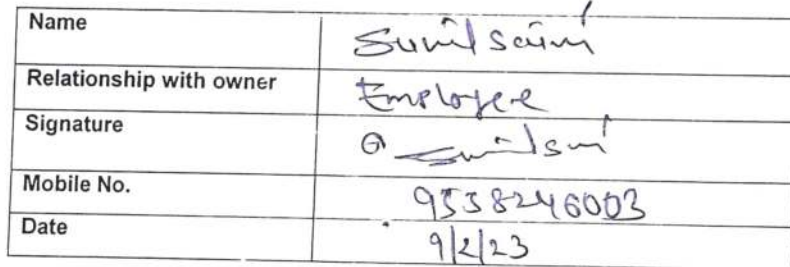 Name Sunil Saini
Relationship with owner Employee
Signature
Mobile No. 9558246003
Date 9/2/23